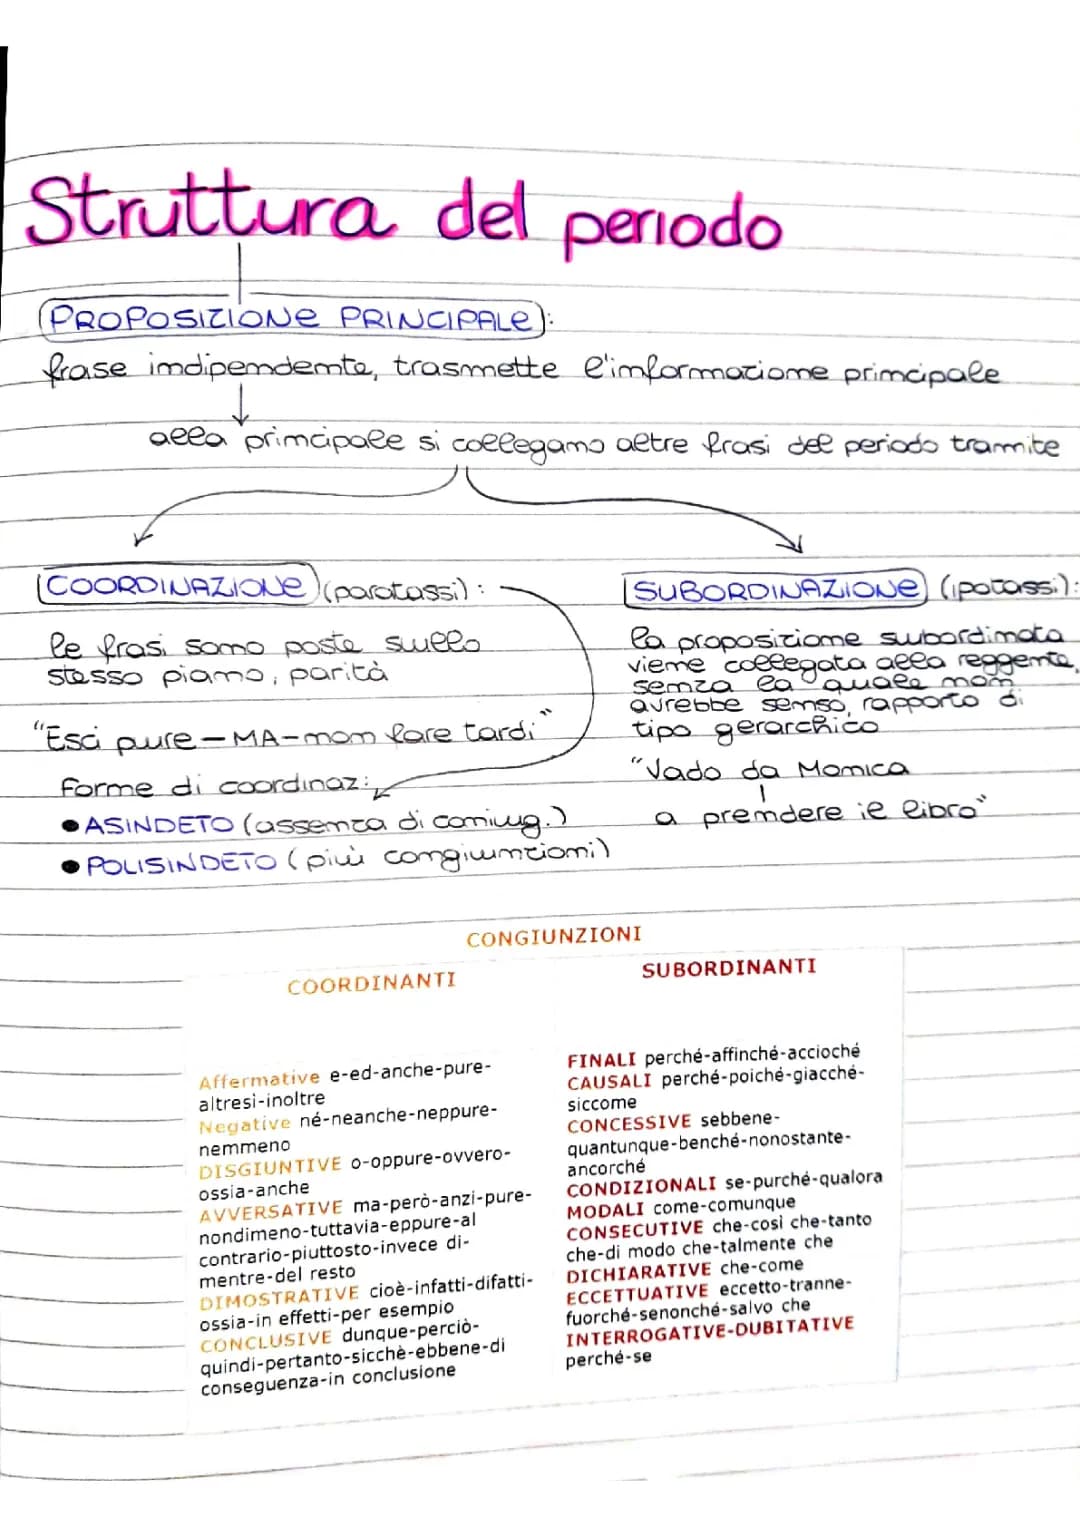 Struttura del periodo
PROPOSIZIONE PRINCIPALE:
frase indipendente, trasmette l'informazione principale
alla principale si collegano altre frasi del periodo tramite
COORDINAZIONE (paratassi):
le frasi sono poste sullo
stesso piano, parità
"Esci pure - MA - non fare tardi"
Forme di coordinaz:
• ASINDETO (assenza di coniug.)
• POLISINDETO (più congiunzioni)
SUBORDINAZIONE (ipotassi):
la proposizione subordinata
viene collegata alla reggente,
senza la quale non
avrebbe senso, rapporto di
tipo gerarchico
"Vado da Monica
a prendere il libro"
CONGIUNZIONI
COORDINANTI
Affermative e-ed-anche-pure-
altresi-inoltre
Negative né-neanche-neppure-
nemmeno
DISGIUNTIVE o-oppure-ovvero-
ossia-anche
AVVERSATIVE ma-però-anzi-pure-
nondimeno-tuttavia-eppure-al
contrario-piuttosto-invece di-
mentre-del resto
DIMOSTRATIVE cioè-infatti-difatti-
ossia-in effetti-per esempio
CONCLUSIVE dunque-perciò-
quindi-pertanto-sicchè-ebbene-di
conseguenza-in conclusione
SUBORDINANTI
FINALI perché-affinché-accioché
CAUSALI perché-poiché-giacché-
siccome
CONCESSIVE sebbene-
quantunque-benché-nonostante-
ancorché
CONDIZIONALI se-purché-qualora
MODALI come-comunque
CONSECUTIVE che-così che-tanto
che-di modo che-talmente che
DICHIARATIVE che-come
ECCETTUATIVE eccetto-tranne-
fuorché-senonché-salvo che
INTERROGATIVE-DUBITATIVE
perché-se